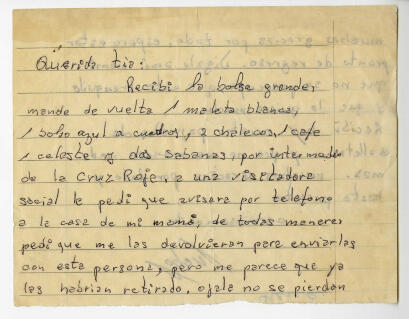 Querida tia:
Recibi la bolsa grande,
mande de vuelta 1 maleta blanca,
1 bolso azul a cuadros, 2 chalecos, 1 cafe
1 celeste y dos sabanas, por intermedio
de la Cruz Roja, a una visitadora
social le pedi que avisara por telefono
a la casa de mi mamá, de todas maneras
pedi que me las devolvieran para enviarlas
con esta persona, pero me parece que ya
las habrian retirado, ojala no se pierdan